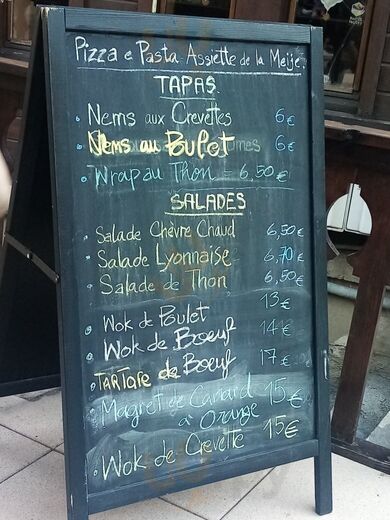 Pizza e Pasta Assiette de la Meije.
TAPAS
• Nems aux Crevettes 6€
• Nems au Poulet 6€
• Wrap au Thon = 6.50€
SALADES
• Salade Chèvre Chaud 6,50€
• Salade Lyonnaise 6,70€
• Salade de Thon 6,50€
• Wok de Poulet 13€
• Wok de Boeuf 14€
• TARTARE de Boeuf 17€
• Magret de Canard 15€
à Orange
• Wok de Crevette 15€